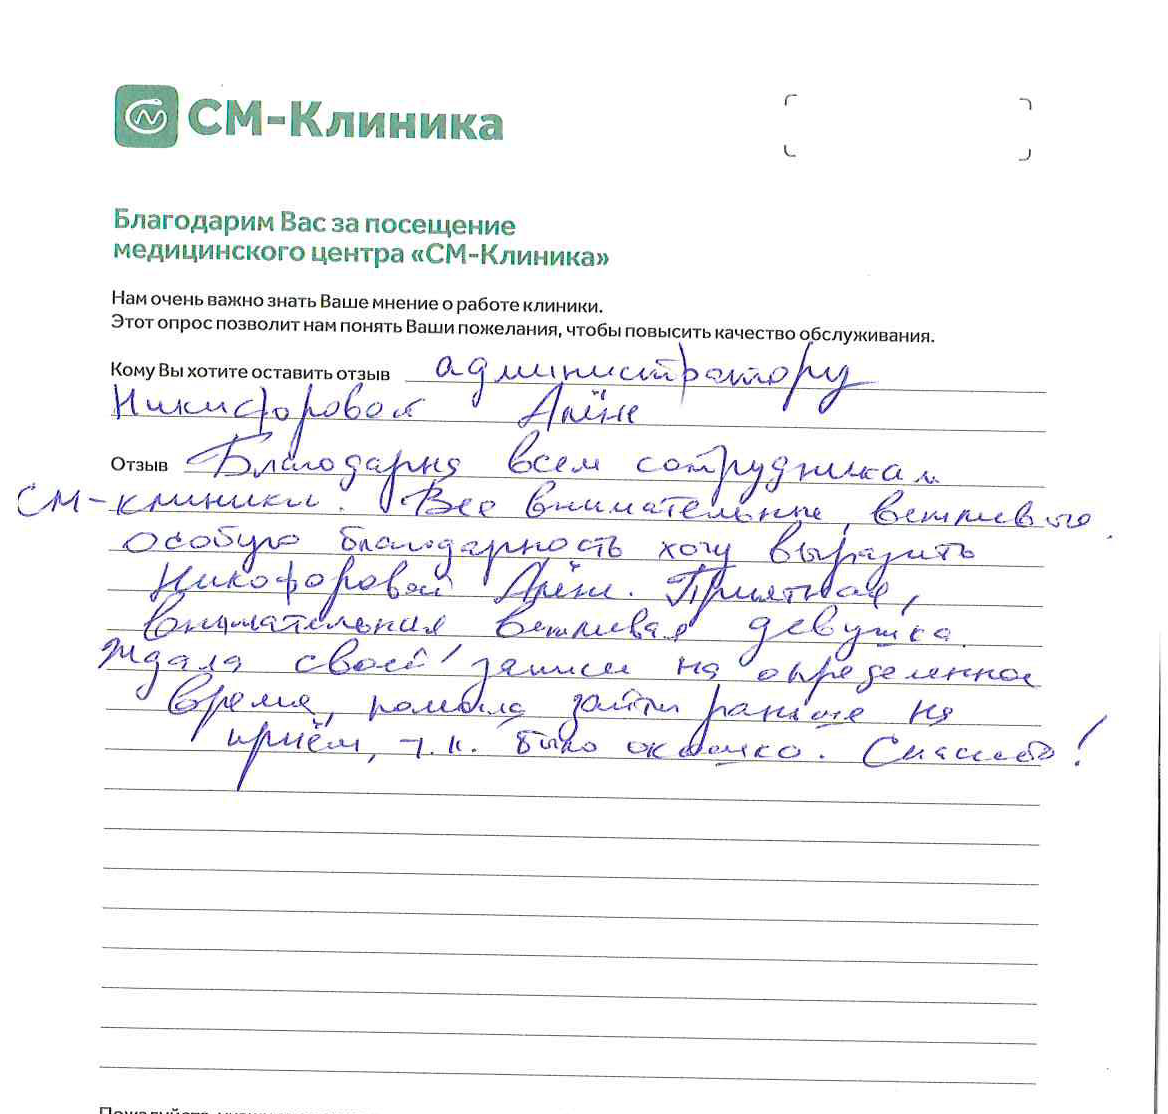 СМ-Клиника
Благодарим Вас за посещение
медицинского центра «СМ-Клиника»
Нам очень важно знать Ваше мнение о работе клиники.
Этот опрос позволит нам понять Ваши пожелания, чтобы повысить качество обслуживания.
Кому Вы хотите оставить отзыв администратору
Никифоровой Алёне
Отзыв Благодарна всем сотрудникам
СМ-клиники. Все внимательные, вежливые.
Особую благодарность хочу выразить
Никофоровой Алёне. Приятная,
внимательная вежливая девушка.
Ждала своей записи на определенное
время, помогла зайти раньше на
приём, т.к. было окошко. Спасибо!